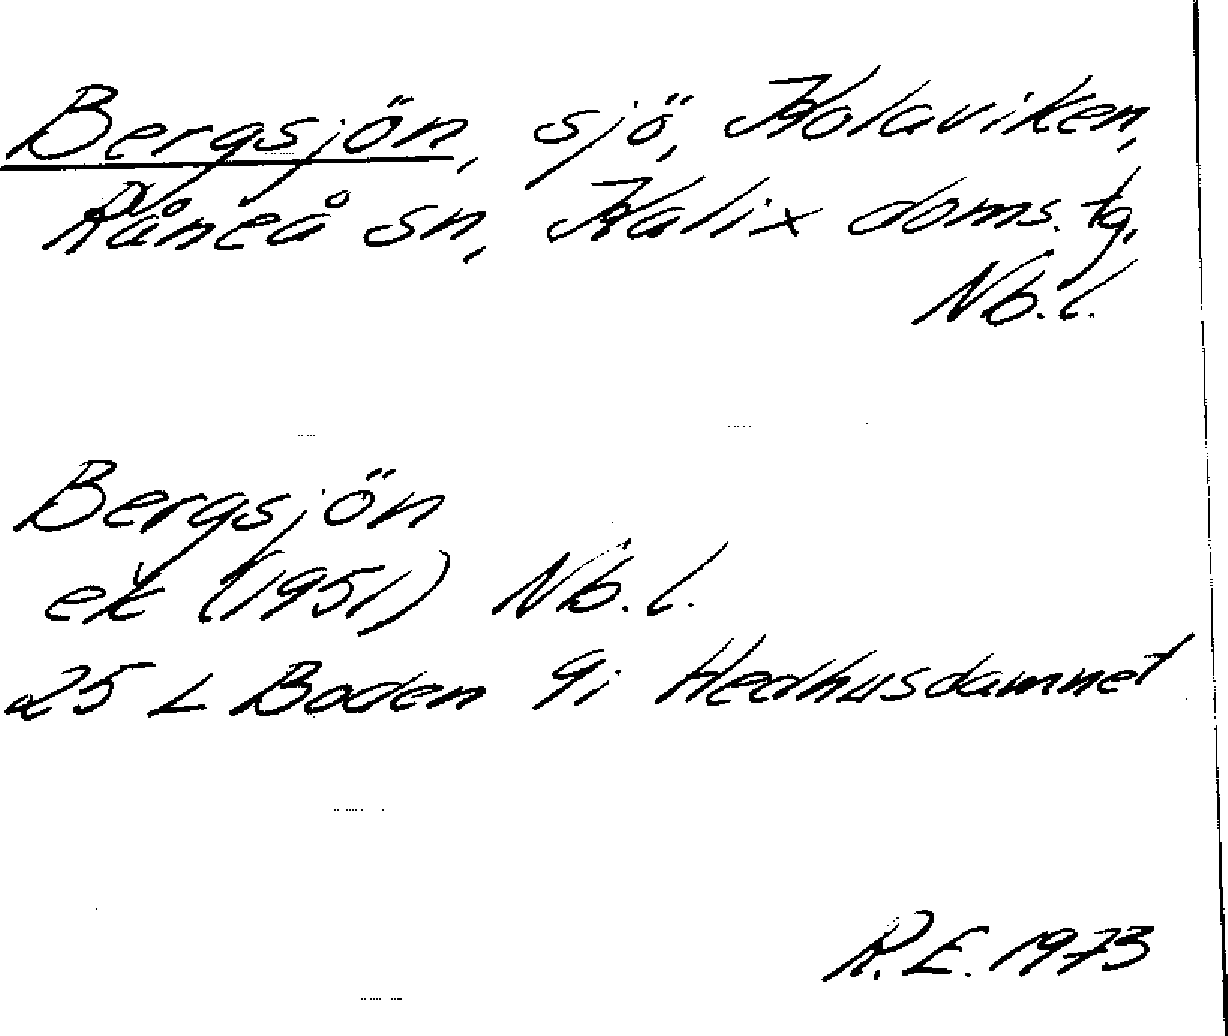 Bergsjön, sjö, Kolaviken,
Råneå sn, Kalix doms. tg,
Nb. l.
Bergsjön
ek (1951) Nb. l.
25 L Boden 9i Hedhusdamnet
R. E. 1973